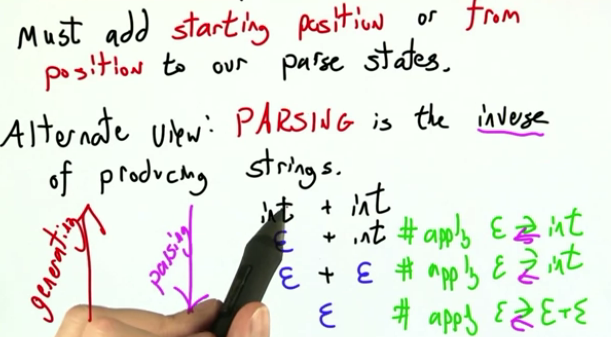 Must add starting position or from
position to our parse states.
Alternate view: PARSING is the inverse
of producing strings.
int + int
generating
parsing
ε + int # apply ε → int
ε + ε # apply ε → int
ε # apply ε → ε+ε